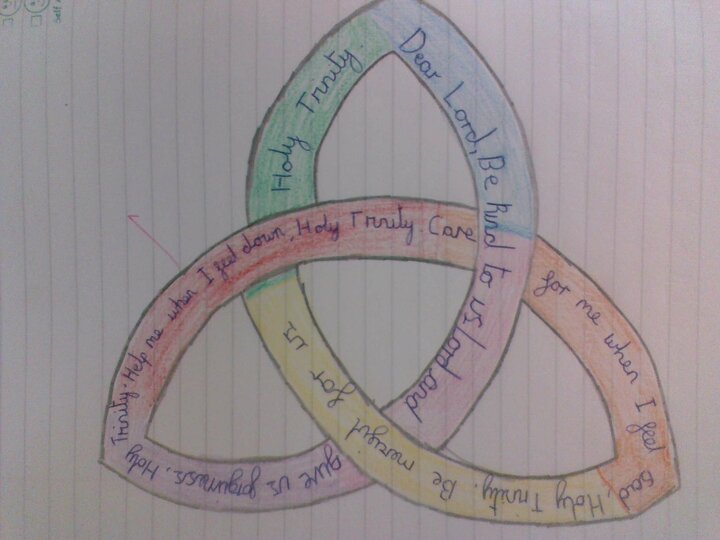 Dear Lord, Be kind to us Lord and
give us forgivness. Holy
Trinity. Help me when I feel down, Holy Trinity. Care
for me when I feel
sad, Holy Trinity. Be mercyful for us
Holy Trinity.